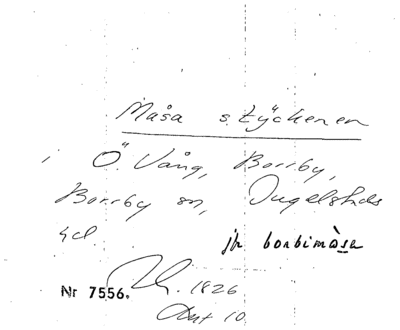 Måsa styckenen
Ö. Vång, Borrby,
Borrby sn, Ingelstads
hd.
jfr borbimåsa
Nr 7556.
1826
Akt 10